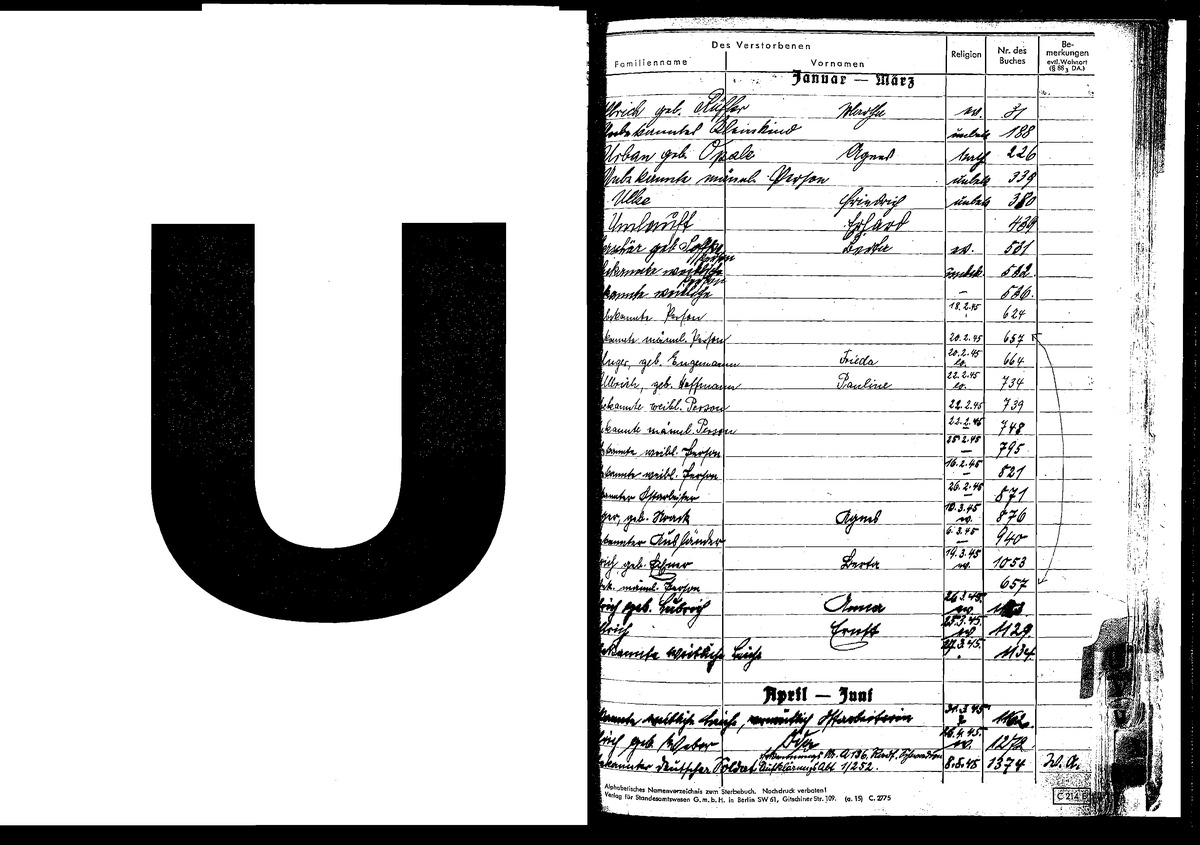 U
Des Verstorbenen
Familienname Vornamen Religion Nr. des Buches Be-merkungen evtl. Wohnort (§ 88, DA.)
Januar — März
lbrich geb. Martha ev. 31
Unbekanntes Kleinkind unbek 188
Urban geb. Opale Agnes kath 226
Unbekannte männl. Person unbek 339
Ulke Friedrich unbek 380
Umlauft Erhard 439
geb. Bertha ev. 501
bekannte weibliche Person unbek. 582
kannte weibliche Person — 586.
bekannte Person 18.2.45 624
kannte männl. Person 20.2.45 657
nger, geb. Engemann Frieda 20.2.45 ev. 664
Ullrich, geb. Hoffmann Pauline 22.2.45 ev. 734
ekannte weibl. Person 22.2.45 739
ekannte männl. Person 22.2.45 — 748
kannte weibl. Person 25.2.45 — 795
kannte weibl. Person 16.2.45 — 821
kannter Ostarbeiter 26.2.45 — 871
ger, geb. Agnes 10.3.45 ev. 876
kannter Ausländer 6.3.45 — 940
rich, geb. Berta 19.3.45 ev. 1053
ek. männl. Person 657
lrich geb. Lubrich Anna 26.3.45. ev
lrich Ernst 28.3.45. ev 1129
ekannte weibliche Leiche 27.3.45. 1134
April — Juni
kannte weibliche Leiche, vermutlich Ostarbeiterin 31.3.45 1162
lrich geb. Weber Ida 26.4.45. ev. 1272
ekannter deutscher Soldat Erkennungs Nr. A 136 Aufklärungs Abt 1/252. 8.5.45 1374 W. A.
Alphabetisches Namenverzeichnis zum Sterbebuch. Nachdruck verboten!
Verlag für Standesamtswesen G. m. b. H. in Berlin SW 61, Gitschiner Str. 109. (a. 15) C. 2775
C 214